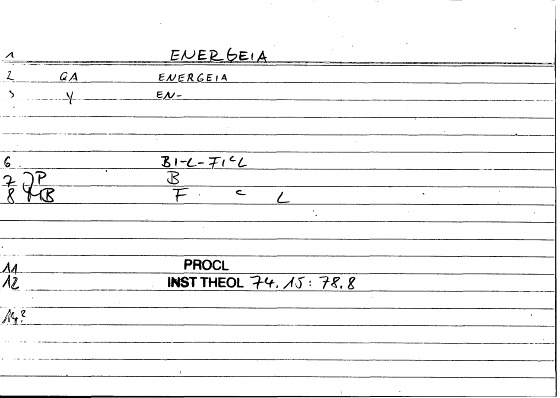 1 ENERGEIA
2 GA ENERGEIA
3 Y EN-
6 BI-L-FIcL
7 P B
8 MB F. c L
11 PROCL
12 INST THEOL 74.15: 78.8
14?